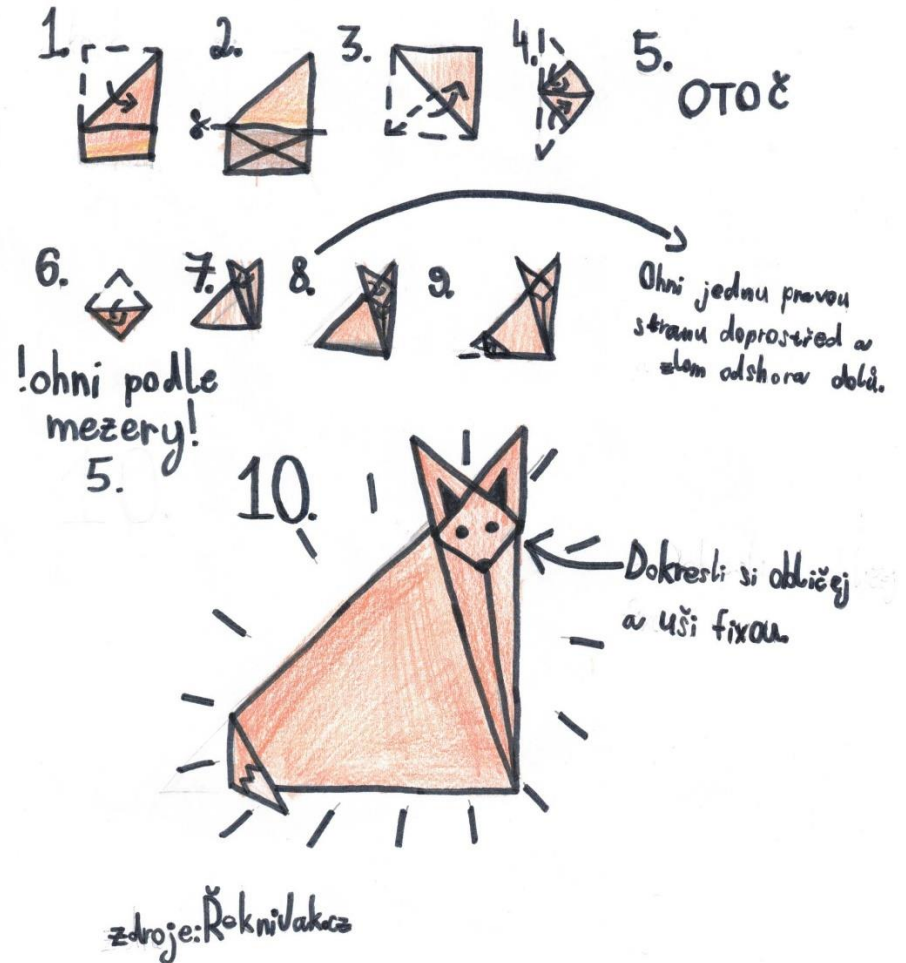 1.
2.
3.
4.
5.
OTOČ
6.
7.
8.
9.
Ohni jednu pravou
stranu doprostřed a
zlom odshora dolů.
!ohni podle
mezery!
5.
10.
Dokresli si obličej
a uši fixou.
zdroje:ŘekniJak.cz